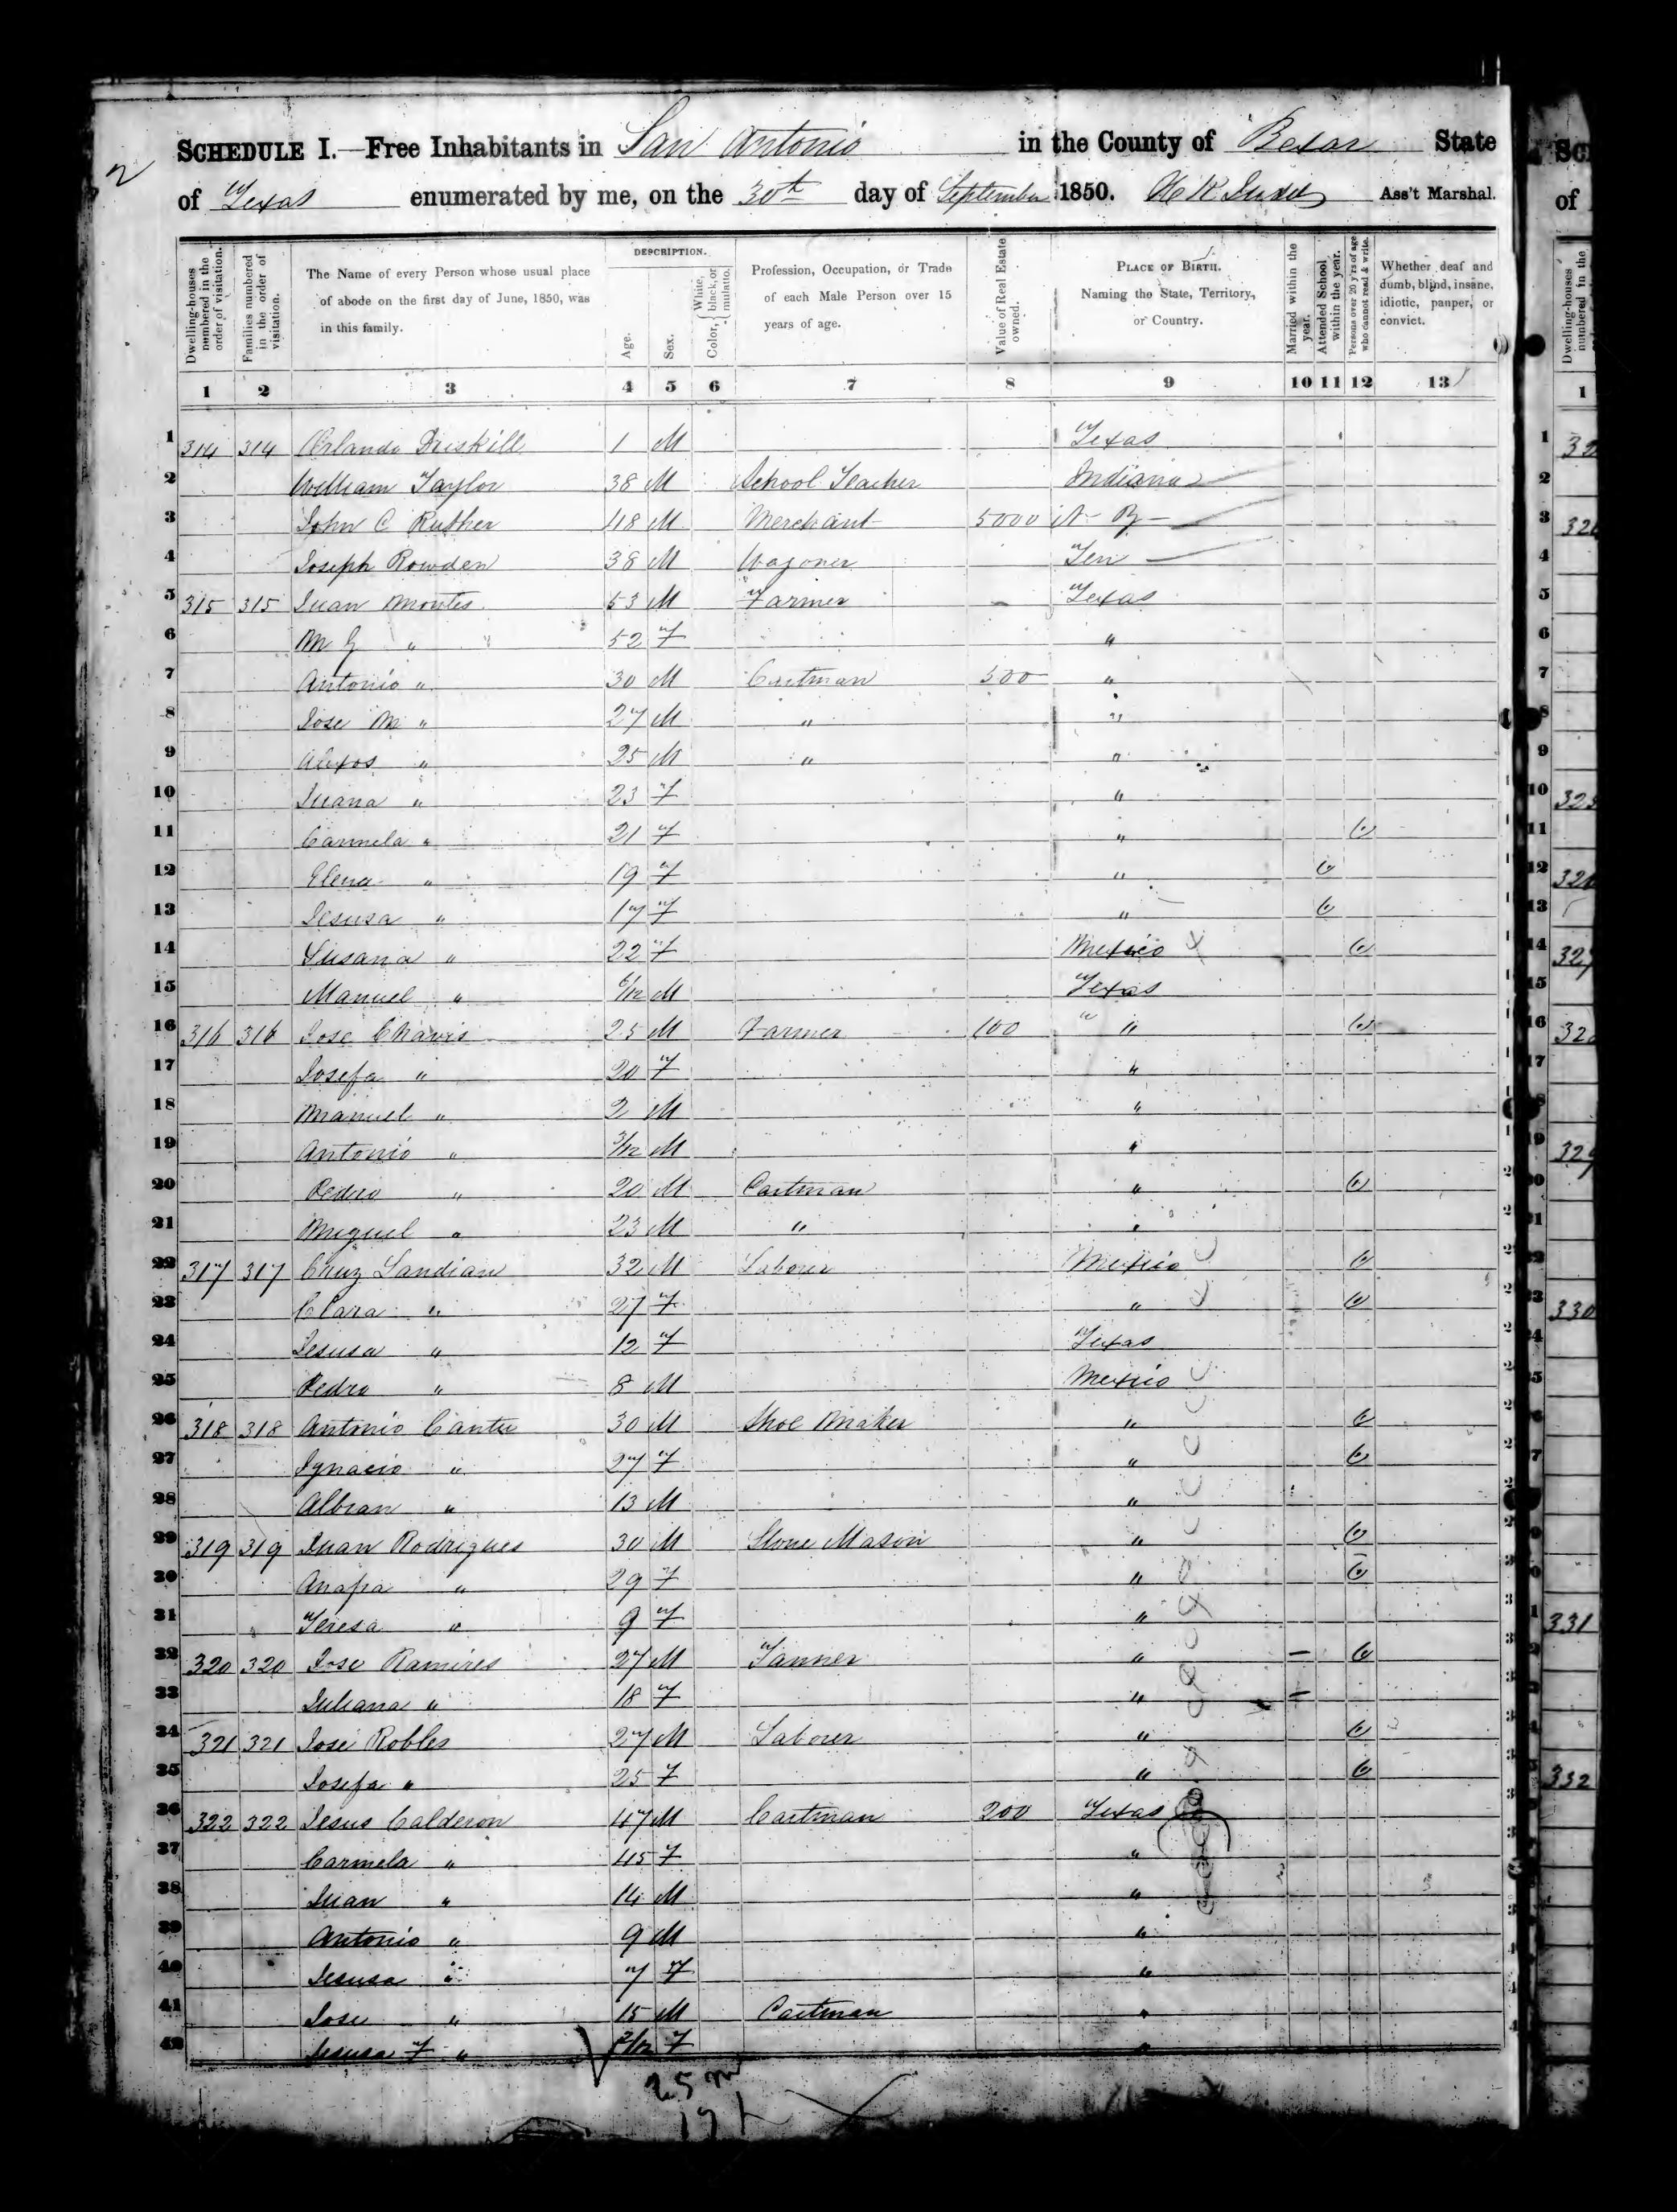 SCHEDULE I.—Free Inhabitants in San Antonio in the County of Bexar State
of Texas enumerated by me, on the 30th day of September 1850. Ass't Marshal.
Dwelling-houses numbered in the order of visitation.
Families numbered in the order of visitation.
The Name of every Person whose usual place of abode on the first day of June, 1850, was in this family.
DESCRIPTION.
Age.
Sex.
Color, { White, black, or mulatto.
Profession, Occupation, or Trade of each Male Person over 15 years of age.
Value of Real Estate owned.
PLACE OF BIRTH. Naming the State, Territory, or Country.
Married within the year.
Attended School within the year.
Persons over 20 y'rs of age who cannot read & write.
Whether deaf and dumb, blind, insane, idiotic, pauper, or convict.
1 2 3 4 5 6 7 8 9 10 11 12 13
1 314 314 Orlando Driskill 1 M Texas
2 William Taylor 38 M School Teacher Indiana
3 John C 48 M Merchant 5000
4 Joseph Rowden 38 M Wagoner Ten
5 315 315 Juan Montes 53 M Farmer Texas
6 M G " 52 F "
7 Antonio " 30 M Cartman 500 "
8 Jose M " 27 M " "
9 " 25 M " "
10 Juana " 23 F "
11 Carmela " 21 F "
12 Elena " 19 F "
13 Jesusa " 17 F "
14 Susana " 22 F Mexico
15 Manuel " 6/12 M Texas
16 316 316 Jose Chavis 25 M Farmer 100 " "
17 Josefa " 20 F "
18 Manuel " 2 M "
19 Antonio " 3/12 M "
20 Pedro " 20 M Cartman "
21 Miguel " 23 M " "
22 317 317 Cruz Sandian 32 M Laborer Mexico
23 Clara " 27 F "
24 Jesusa " 12 F Texas
25 Pedro " 8 M Mexico
26 318 318 Antonio Cantu 30 M Shoe Maker "
27 Ignacio " 27 F "
28 Albian " 13 M "
29 319 319 Juan Rodrigues 30 M Stone Mason "
30 " 29 F "
31 Teresa " 9 F "
32 320 320 Jose Ramires 27 M Tanner "
33 Juliana " 18 F "
34 321 321 Jose Robles 27 M Laborer "
35 Josefa " 25 F "
36 322 322 Jesus Calderon 47 M Cartman 200 Texas
37 Carmela " 45 F "
38 Juan " 14 M "
39 Antonio " 9 M "
40 Jesusa " 7 F "
41 Jose " 15 M Cartman "
42 Jesusa F " 2/12 F "
25 m